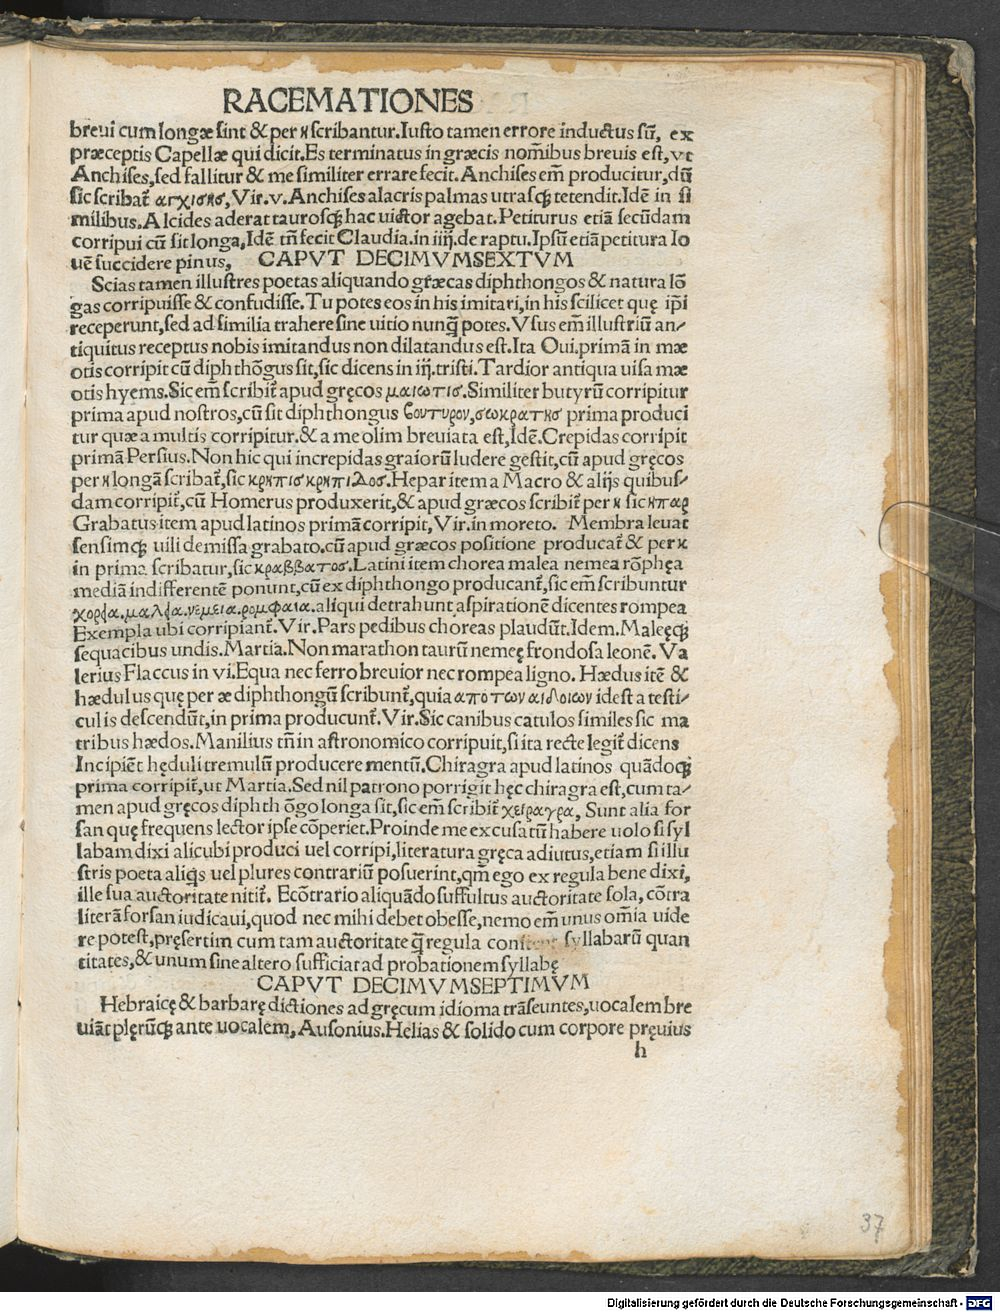 RACEMATIONES
breui cum longæ sint & per ϰ scribantur. Iusto tamen errore inductus sũ, ex
præceptis Capellæ qui dicit. Es terminatus in græcis nom̃ibus breuis est, vt
Anchises, sed fallitur & me similiter errare fecit. Anchises em̃ producitur, dũ
sic scribat̃ αγχισης, Vir. v. Anchises alacris palmas utrasq̃ tetendit. Idẽ in si
milibus. Alcides aderat taurosq̃ hac uictor agebat. Petiturus etiã secũdam
corripui cũ sit longa, Idẽ tñ fecit Claudia. in iiij. de raptu. Ipsũ etiã petitura Io
uẽ succidere pinus, CAPVT DECIMVMSEXTVM
Scias tamen illustres poetas aliquando græcas diphthongos & natura lõ
gas corripuisse & confudisse. Tu potes eos in his imitari, in his scilicet quę ip̃i
receperunt, sed ad similia trahere sine uitio nunq̃ potes. Vsus em̃ illustriũ an/
tiquitus receptus nobis imitandus non dilatandus est. Ita Oui. primã in mæ
otis corripit cũ diphthõgus sit, sic dicens in iij. tristi. Tardior antiqua uisa mæ
otis hyems. Sic em̃ scribit̃ apud gręcos μαιωτισ. Similiter butyrũ corripitur
prima apud nostros, cũ sit diphthongus βουτυρον, σωκρατησ prima produci
tur quæ a multis corripitur. & a me olim breuiata est, Idẽ. Crepidas corripit
primã Persius. Non hic qui increpidas graiorũ ludere gestit, cũ apud gręcos
per ϰ longã scribat̃, sic κρηπισ κρηπιδοσ. Hepar item a Macro & alijs quibus/
dam corripit̃, cũ Homerus produxerit, & apud græcos scribit̃ per ϰ sic ηπαρ
Grabatus item apud latinos primã corripit, Vir. in moreto. Membra leuat
sensimq̃ uili demissa grabato. cũ apud græcos positione producat̃ & per κ
in prima scribatur, sic κραββατοσ. Latini item chorea malea nemea rõphęa
mediã indifferentẽ ponunt, cũ ex diphthongo producant̃, sic em̃ scribuntur
χορεια. μαλεια. νεμεια. ρομφαια. aliqui detrahunt aspirationẽ dicentes rompea
Exempla ubi corripiant̃. Vir. Pars pedibus choreas plaudũt. Idem. Maleęq̃
sequacibus undis. Martia. Non marathon taurũ nemeę frondosa leonẽ. Va
lerius Flaccus in vi. Equa nec ferro breuior nec rompea ligno. Hædus itẽ &
hædulus quę per æ diphthongũ scribunt̃, quia απο των αιδοιων idest a testi/
culis descendũt, in prima producunt̃. Vir. Sic canibus catulos similes sic ma
tribus hædos. Manilius tñ in astronomico corripuit, si ita recte legit̃ dicens
Incipiẽt hęduli tremulũ producere mentũ. Chiragra apud latinos quãdoq̃
prima corripit̃, ut Martia. Sed nil patrono porrigit hęc chiragra est, cum ta/
men apud gręcos diphthõgo longa sit, sic em̃ scribit̃ χειραγρα, Sunt alia for
san quę frequens lector ipse cõperiet. Proinde me excusatũ habere uolo si syl
labam dixi alicubi produci uel corripi, literatura gręca adiutus, etiam si illu
stris poeta aliq̃s uel plures contrariũ posuerint, qm̃ ego ex regula bene dixi,
ille sua auctoritate nitit̃. Ecõtrario aliquãdo suffultus auctoritate sola, cõtra
literã forsan iudicaui, quod nec mihi debet obesse, nemo em̃ unus om̃ia uide
re potest, pręsertim cum tam auctoritate q̃ regula syllabarũ quan
titates, & unum sine altero sufficiat ad probationem syllabę
CAPVT DECIMVMSEPTIMVM
Hebraicę & barbarę dictiones ad gręcum idioma trãseuntes, uocalem bre
uiãt plęrũq̃ ante uocalem, Ausonius. Helias & solido cum corpore pręuius
h
37
Digitalisierung gefördert durch die Deutsche Forschungsgemeinschaft - DFG